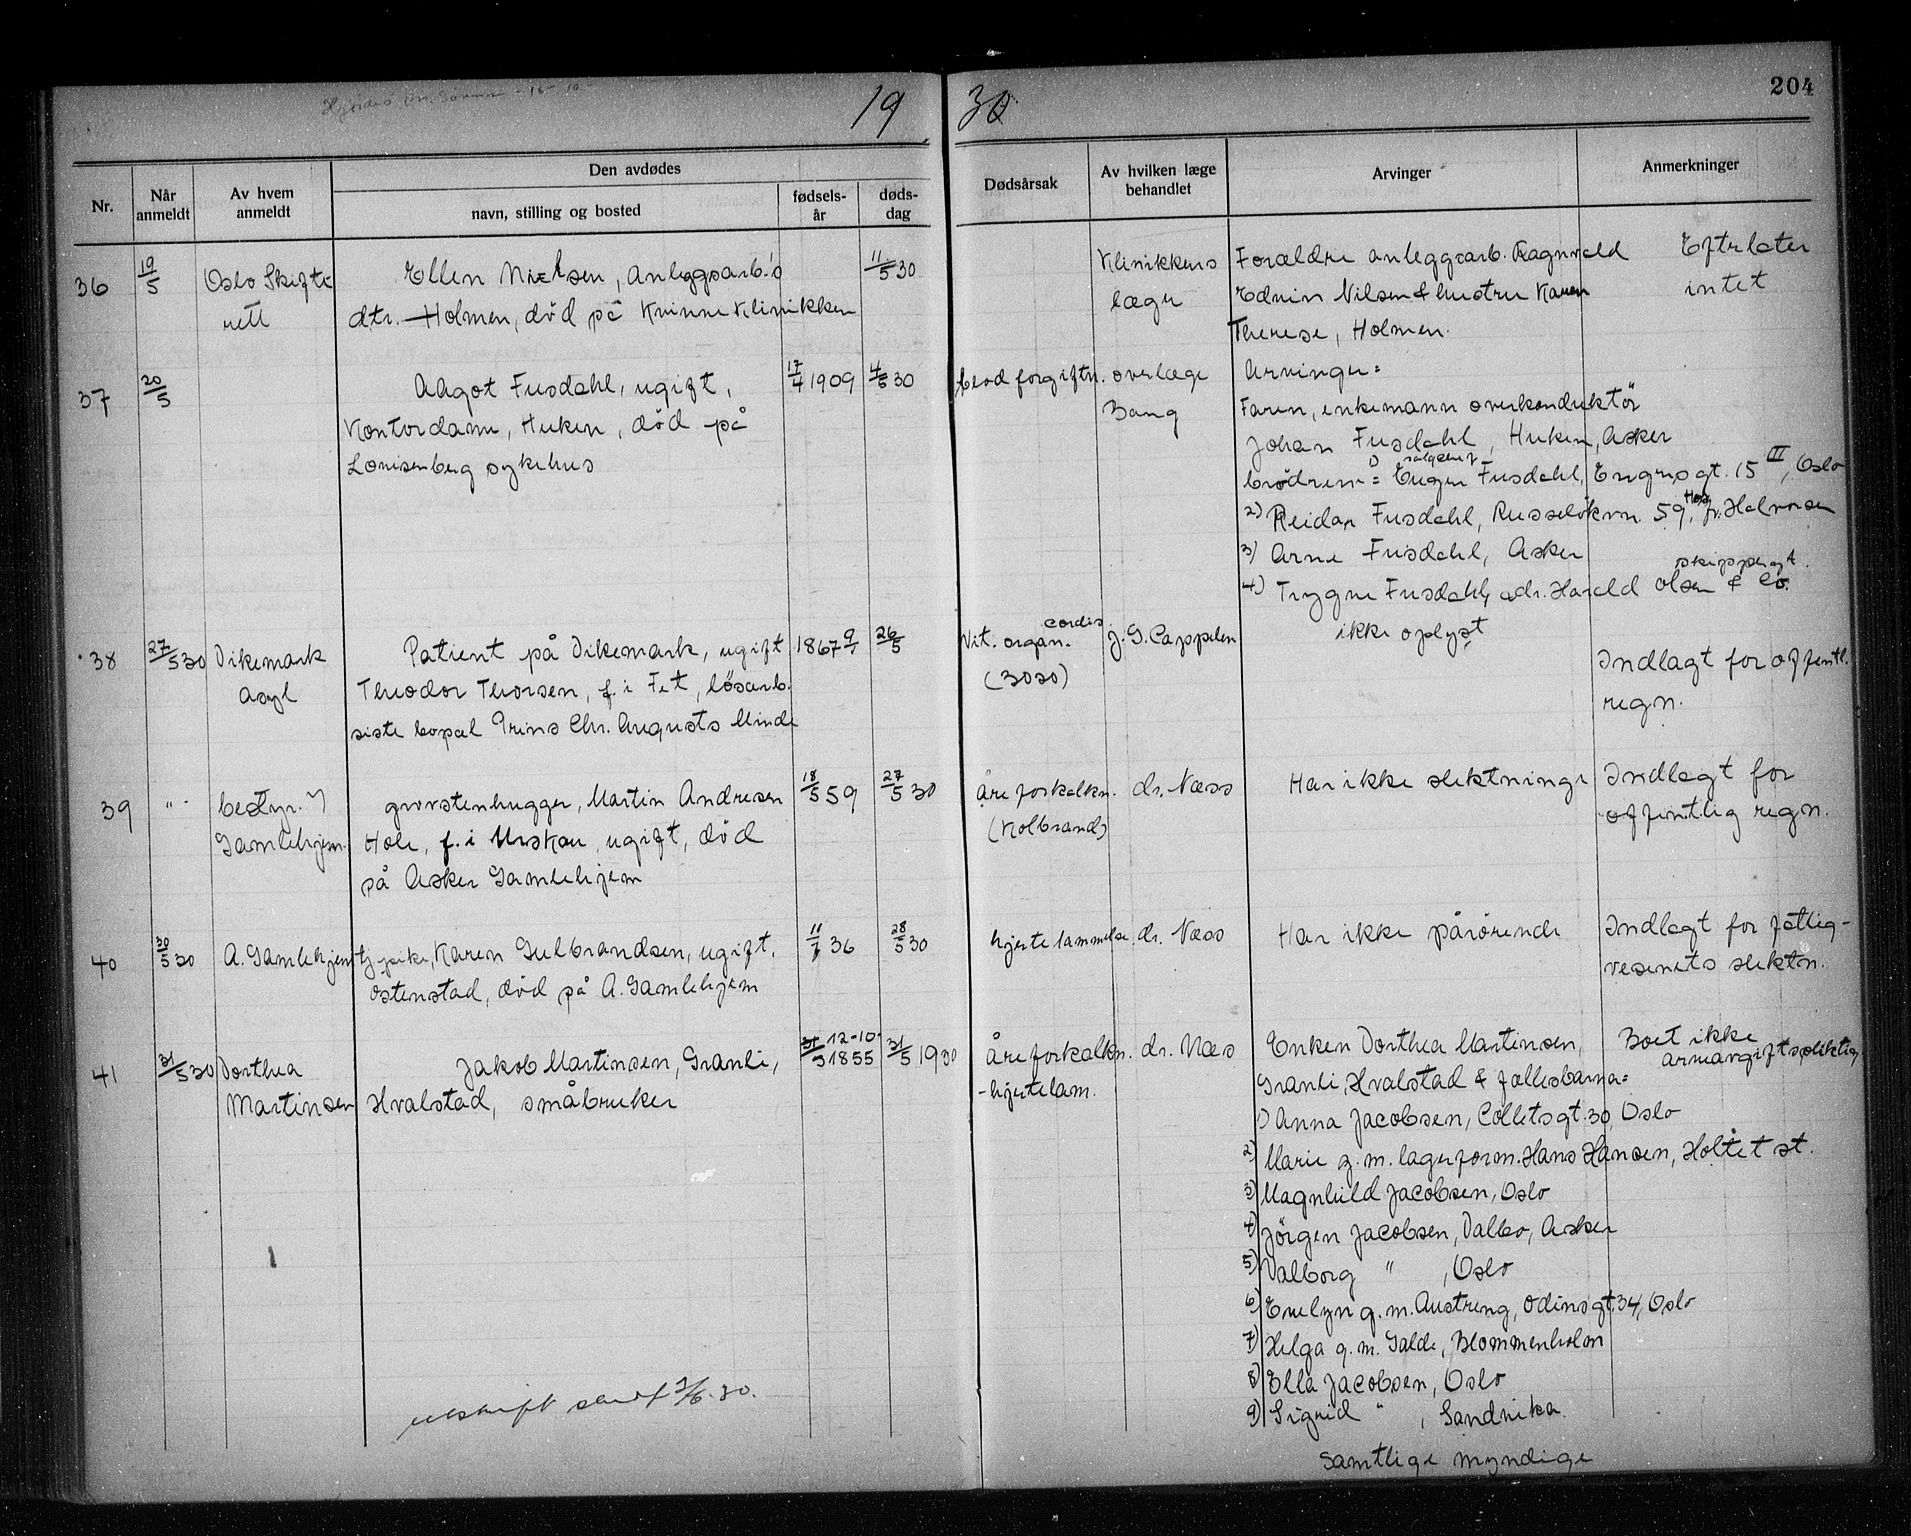 19 30
204
Nr.
Når anmeldt
Av hvem anmeldt
Den avdødes
navn, stilling og bosted
fødsels-år
døds-dag
Dødsårsak
Av hvilken læge behandlet
Arvinger
Anmerkninger
36 19/5 Oslo Skifte-
rett
Ellen Nielsen, anleggsarb.'s
dtr. Holmen, død på Kvinneklinikken
11/5 30
Klinikkens
læge
Forældre anleggsarb. Ragnvald
Edvin Nilsen & hustru Karen
Therese, Holmen.
Efterlater
intet
37 20/5
Aagot Fusdahl, ugift,
Kontordame, Huken, død på
Lovisenberg sykehus
17/4 1909 4/5 30
blodforgiftn.
overlæge
Bang
Arvinger:
Faren, enkemann overkonduktör
Johan Fusdahl, Huken, Asker
brødrene: 1) Eugen Fusdahl, Engros gt. 15 III, Oslo
2) Reidar Fusdahl, Russeløkvn. 59, Hos fr. Halvorsen
3) Arne Fusdahl, Asker
4) Trygve Fusdahl, adr. Harald Olsen & Co. skippergt.
38 27/5 30 Dikemark
asyl
Patient på Dikemark, ugift
Theodor Thorsen, f. i Fet, løsarb.
siste bopæl Prins Chr. Augusts Minde
1867 9/1 26/5
Vit. organ. cordis
(3030)
J. G. Cappelen
ikke oplyst
Indlagt for offentl.
regn.
39 " bestyr.
Gamlehjem.
grovstenhugger, Martin Andresen
Hole, f. i Urskou, ugift, død
på Asker Gamlehjem
18/5 59 27/5 30
åreforkalkn.
(Kolbrand)
dr. Næss
Har ikke slektninge
Indlagt for
offentlig regn.
40 30/5 30 A. Gamlehjem
tj.pike, Karen Gulbrandsen, ugift,
Østenstad, død på A. Gamlehjem
11/7 36 28/5 30
hjertelammelse
dr. Næss
Har ikke pårørende
Indlagt for fattig-
vesenets slektn.
41 31/5 30 Dorthea
Martinsen
Jakob Martinsen, Granli,
Hvalstad, småbruker
12-10-1855 31/5 1930
åreforkalkn.
-hjertelam.
dr. Næss
Enken Dorthea Martinsen,
Granli, Hvalstad & fællesbarna:
1) Anna Jacobsen, Colletsgt. 30, Oslo
2) Marie g. m. lagerform. Hans Hansen, Holtet st.
3) Magnhild Jacobsen, Oslo
4) Jörgen Jacobsen, Dalbo, Asker
5) Valborg " , Oslo
6) Evelyn g. m. Austreng, Odinsgt. 34, Oslo
7) Helga g. m. Galde, Blommenholm
8) Ella Jacobsen, Oslo
9) Sigrid " , Sandvika.
Samtlige myndige
Boet ikke
arveavgiftspliktig
utskrift sendt 3/6.30.